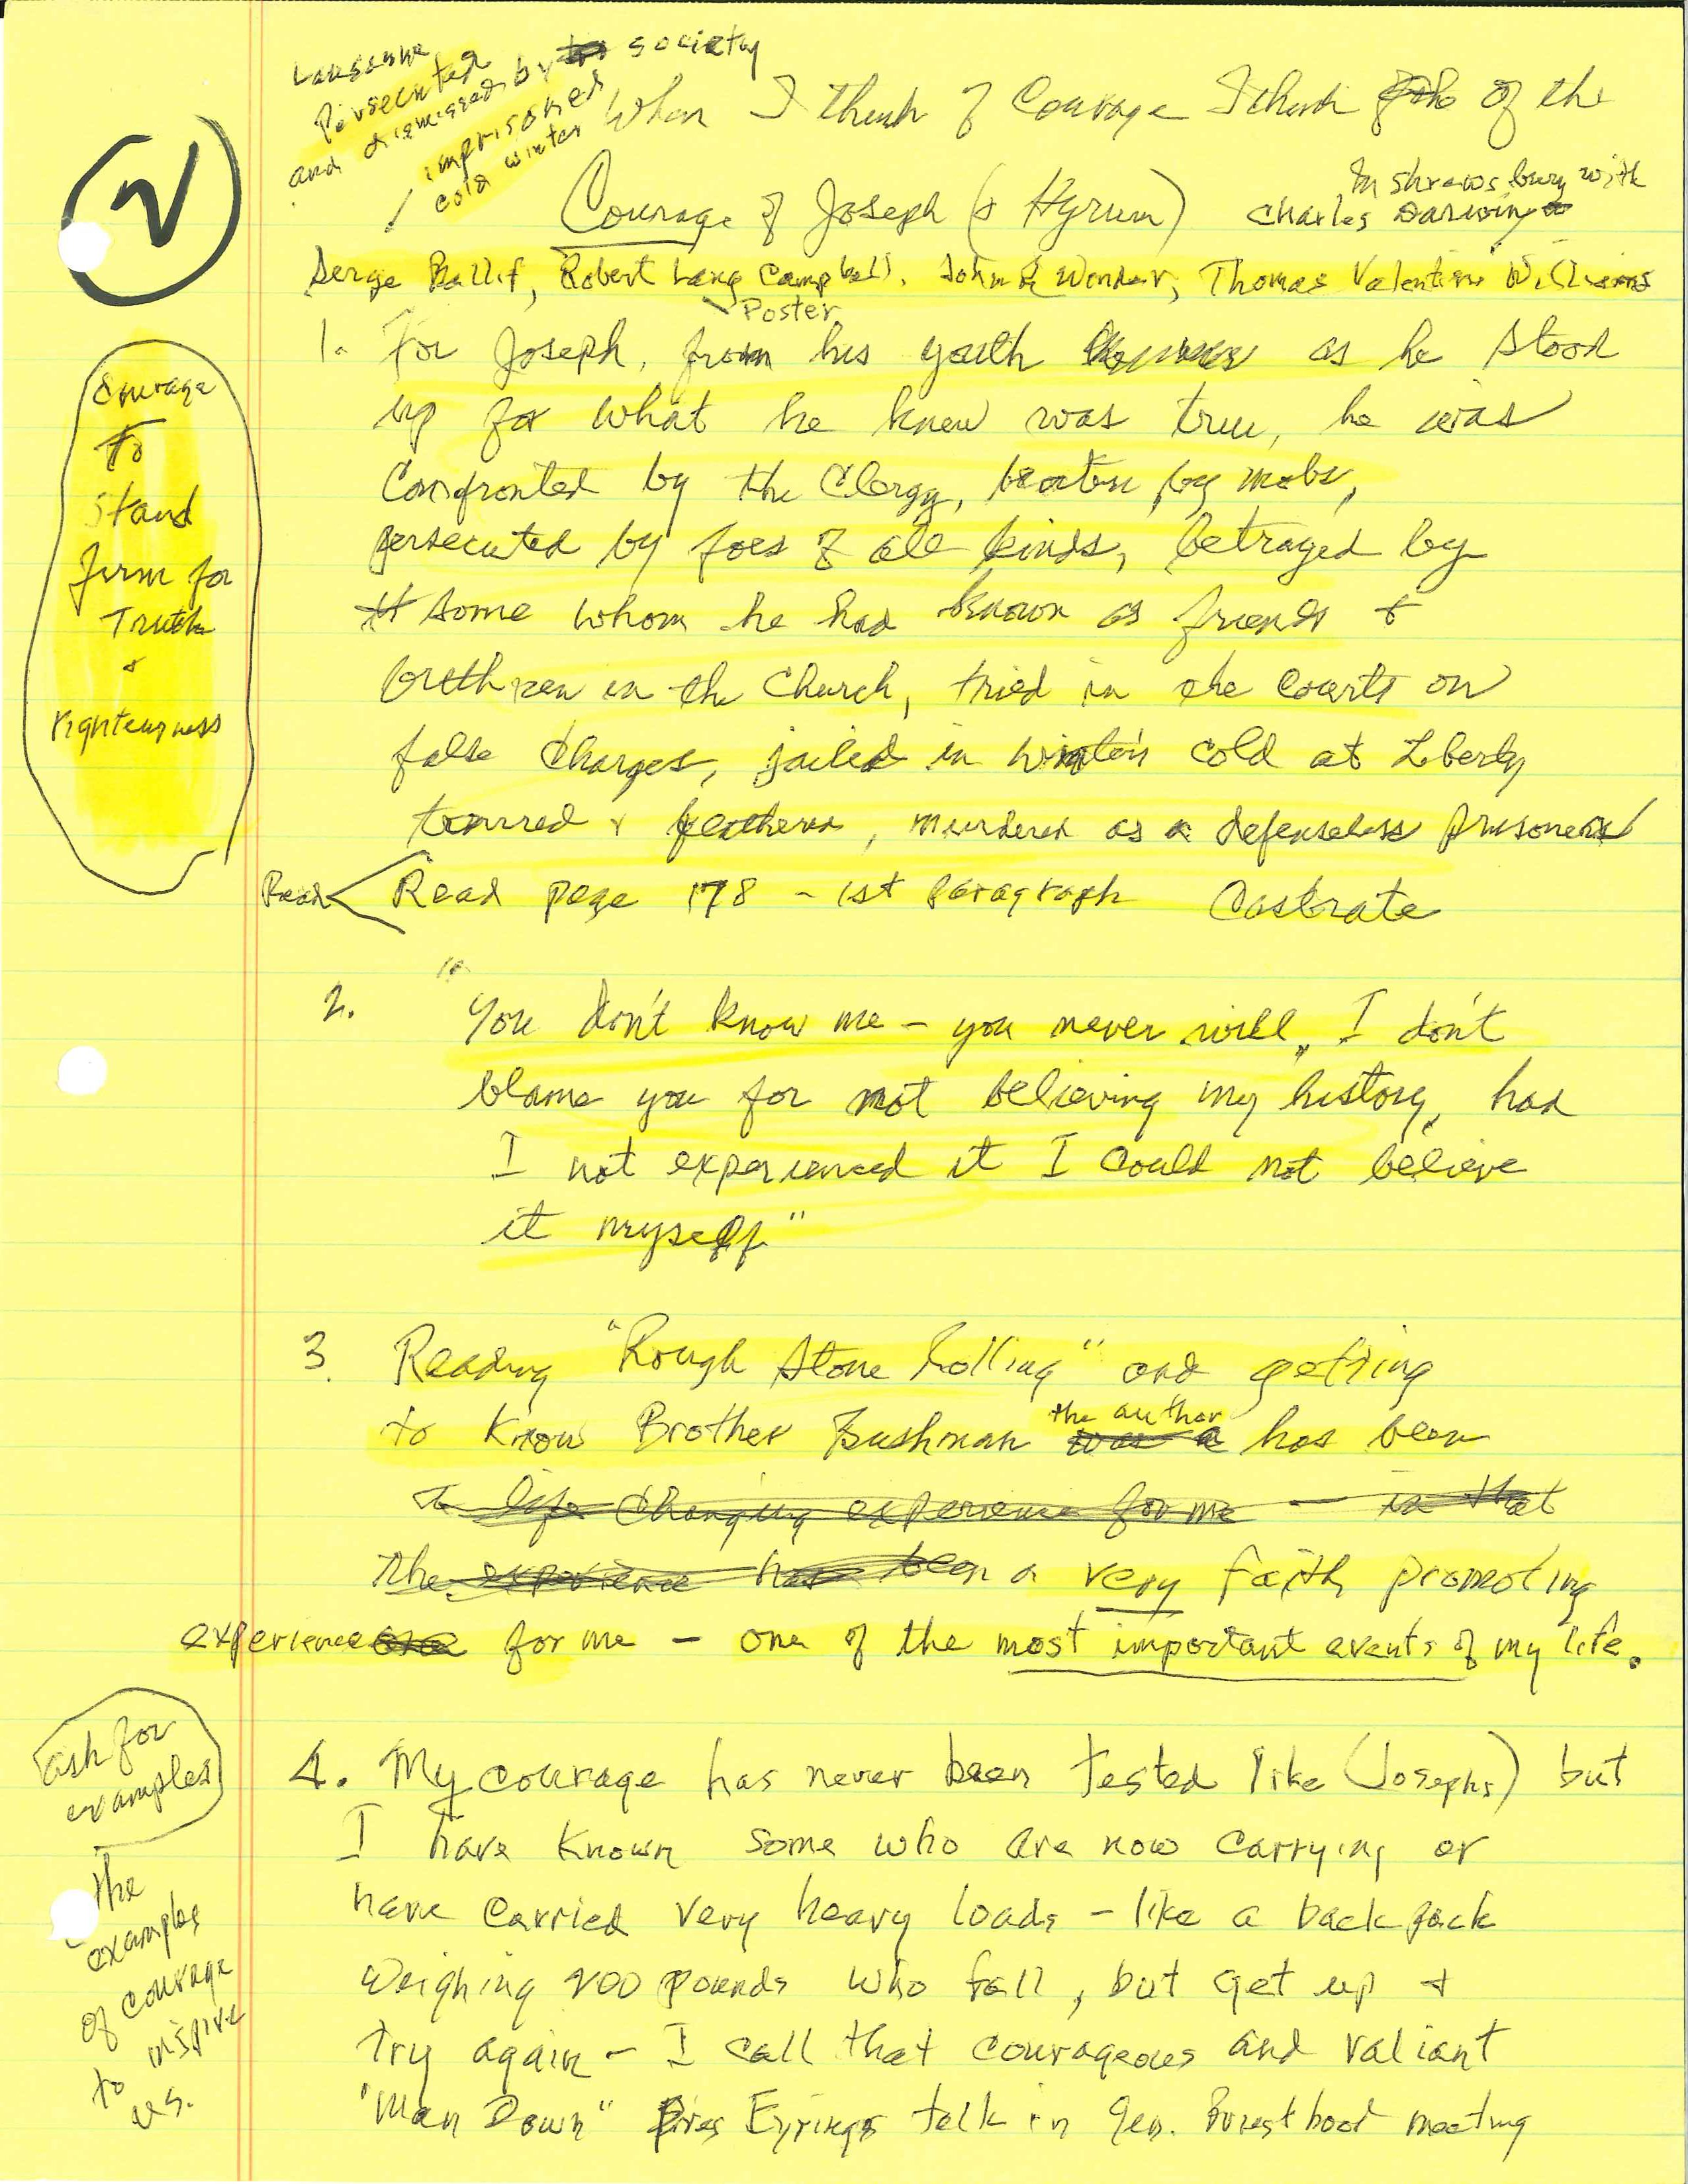 Lausanne
Persecuted
and dismissed by society
imprisoned
cold winter
2
When I think of Courage I think of the
Courage of Joseph (& Hyrum)
In Shrewsbury with
Charles Darwin
Serge Ballif, Robert Lang Campbell, John R Winder, Thomas Valentine Williams
Poster
1. For Joseph, from his youth as he stood
up for what he knew was true, he was
Confronted by the Clergy, beaten by mobs,
persecuted by foes of all kinds, betrayed by
some whom he had known as friends &
brethren in the Church, tried in the courts on
false charges, jailed in winter's cold at Liberty
tarred & feathered, murdered as a defenseless prisoner
Read < Read page 178 - 1st Paragraph Castrate
Courage
To
Stand
firm for
Truth
&
righteousness
2. "You don't know me - you never will. I don't
blame you for not believing my history, had
I not experienced it I could not believe
it myself"
3. Reading "Rough Stone Rolling" and getting
to know Brother Bushman the author was a has been
a life changing experience for me - in that
the experience has been a very faith promoting
experience for me - one of the most important events of my life.
ask for
examples
The
examples
of courage
to inspire
us.
4. My courage has never been tested like (Josephs) but
I have known some who are now carrying or
have carried very heavy loads - like a back pack
weighing 200 pounds who fall, but get up &
try again - I call that courageous and valiant
"Man Down" Pres Eyrings talk in Gen. Priesthood meeting